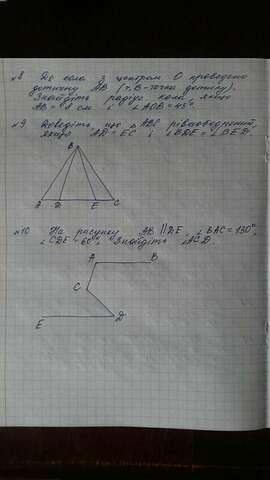 №8 До кола з центром О проведено
дотичну АВ (т. В - точка дотику).
Знайдіть радіус кола якщо
АВ = 8 см і ∠АОВ = 45°.
№9 Доведіть, що △ АВС рівнобедрений,
якщо AD = EC і ∠BDE = ∠BED.
B
A D E C
№10 На рисунку АВ || DE, ∠BAC = 130°,
∠CDE = 60°. Знайдіть ∠ACD.
A B
C
E D